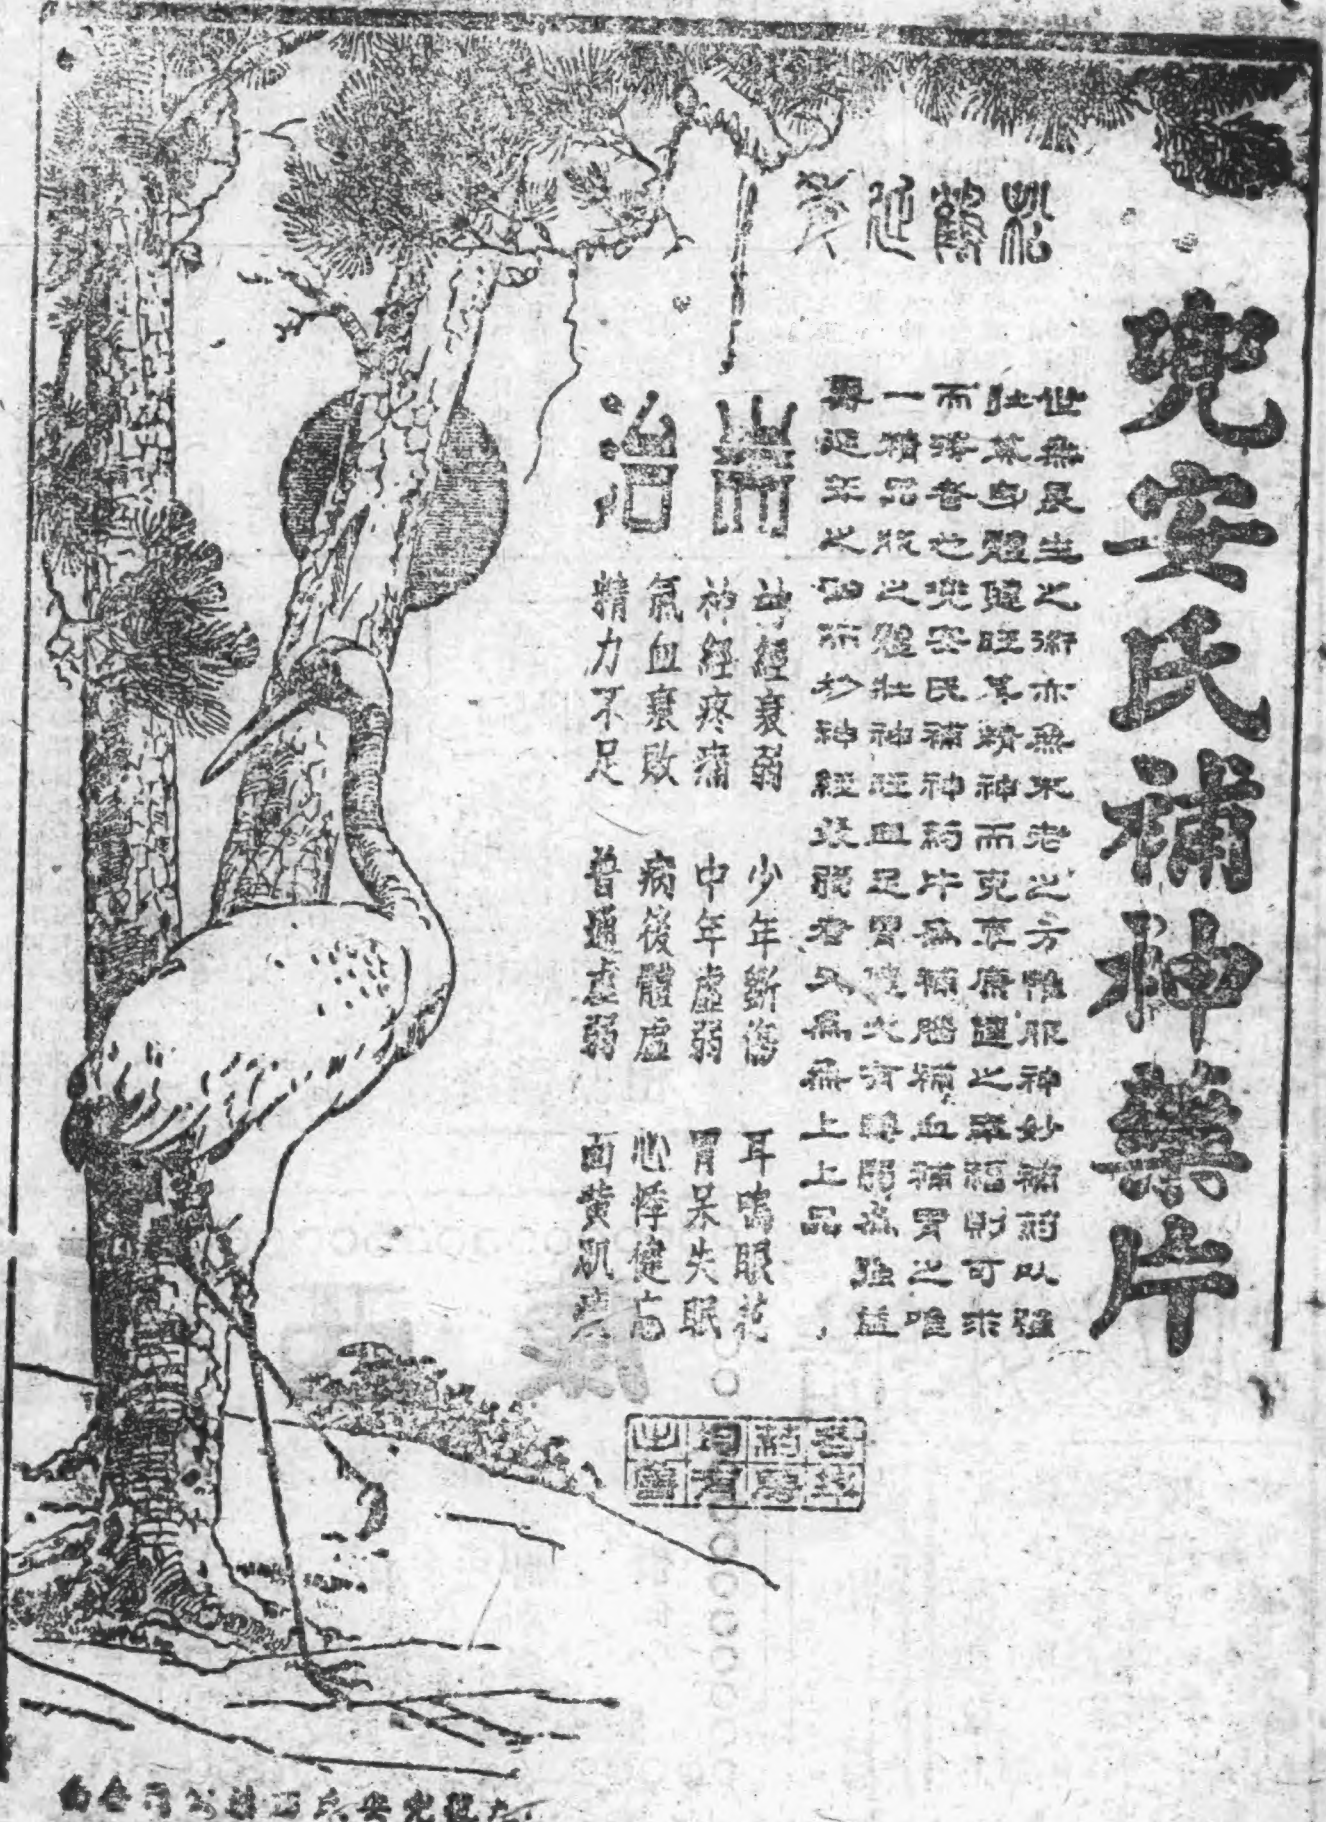 松鶴延年
兜安氏補神藥片
世無長生之術亦無不老之方惟服神妙補葯以強
壯其身體健旺其精神而克享康健之幸福則可求
而得者也兜安氏補神葯片為補腦補血補胃之唯
一精品服之體壯神旺血足胃健大有轉弱為強益
壽延年之功而於神經衰弱者尤為無上上品
專治
神經衰弱 少年斲傷 耳鳴眼花
神經疼痛 中年虛弱 胃呆失眠
氣血衰敗 病後體虛 心悸健忘
精力不足 普通虛弱 面黃肌瘦
各埠葯房均有出售
兜安氏西藥公司